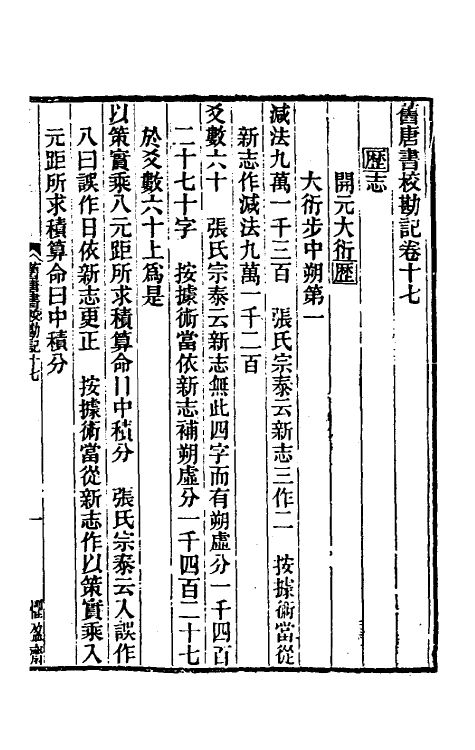 舊唐書校勘記卷十七
歷志
開元大衍歷
大衍步中朔第一
減法九萬一千三百　張氏宗泰云新志三作二　按據術當從
新志作減法九萬一千二百
爻數六十　張氏宗泰云新志無此四字而有朔虛分一千四百
二十七十字　按據術當依新志補朔虛分一千四百二十七
於爻數六十上爲是
以策實乘八元距所求積算命日中積分　張氏宗泰云入誤作
八曰誤作日依新志更正　按據術當從新志作以策實乘入
元距所求積算命曰中積分
舊唐書校勘記十七
一
懼盈齋